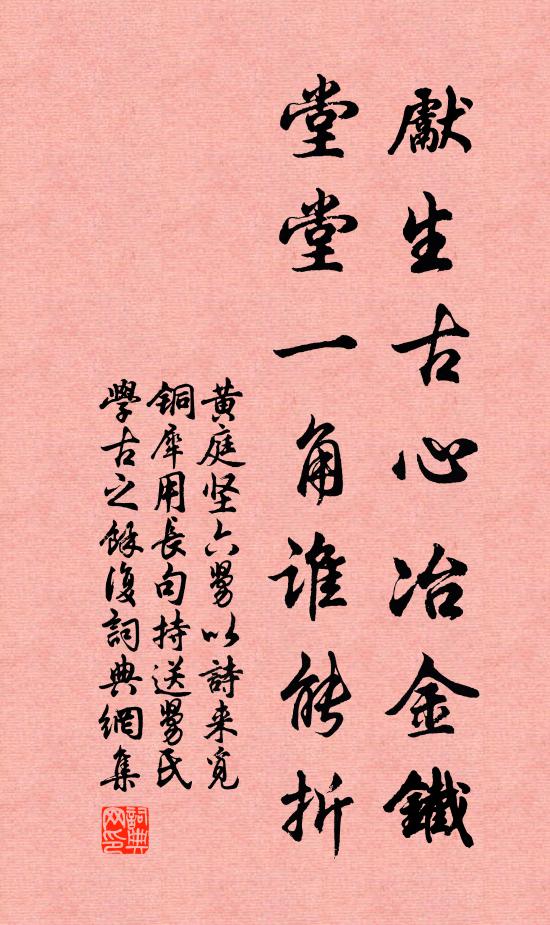 獻生古心冶金鐵
堂堂一角誰能折
黄庭坚六舅以詩来覓
銅犀用長句持送舅氏
學古之餘復詞典網集
詞典网印